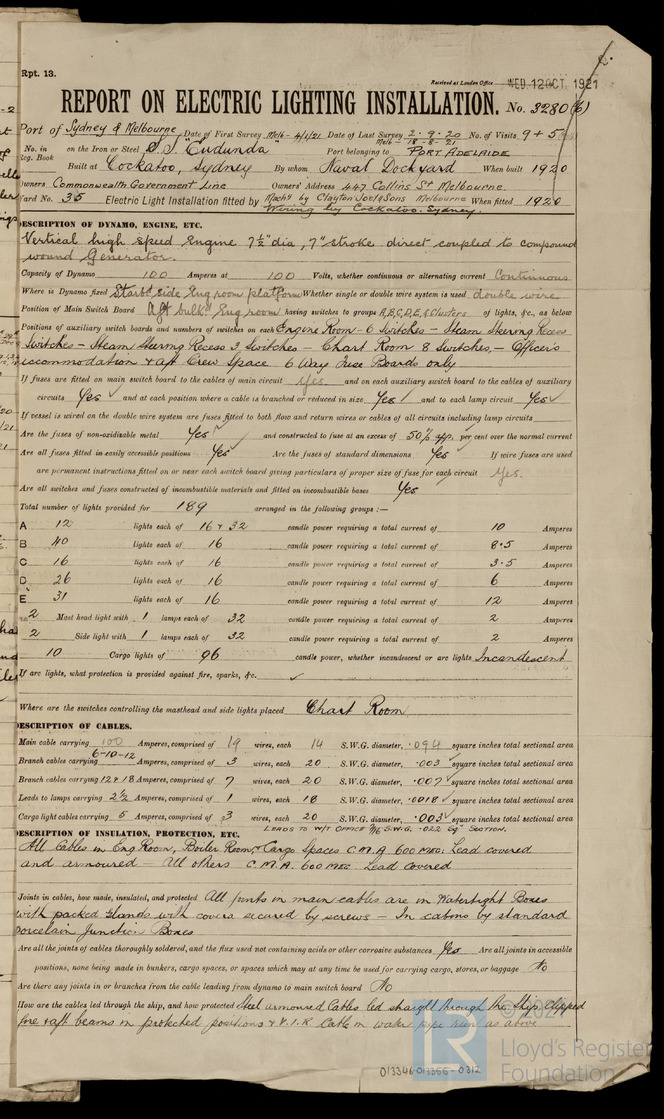 Rpt. 13.
Received at London Office WED. 12 OCT. 1921
REPORT ON ELECTRIC LIGHTING INSTALLATION. No. 3280(b)
Port of Sydney & Melbourne Date of First Survey Melb - 4/1/21 Date of Last Survey 2.9.20 No. of Visits 9+5
Melb - 18-8-21
No. in on the Iron or Steel S.S. "Eudunda" Port belonging to PORT ADELAIDE
Reg. Book
Built at Cockatoo, Sydney By whom Naval Dockyard When built 1920
Owners Commonwealth Government Line Owners' Address 447 Collins St Melbourne
Yard No. 35 Electric Light Installation fitted by Mach'y by Clayton Joel & Sons Melbourne When fitted 1920
Wiring by Cockatoo. Sydney.
DESCRIPTION OF DYNAMO, ENGINE, ETC.
Vertical high speed Engine 7½" dia, 7" stroke direct coupled to compound
wound Generator.
Capacity of Dynamo 100 Amperes at 100 Volts, whether continuous or alternating current Continuous
Where is Dynamo fixed Starbd side Eng room platform Whether single or double wire system is used double wire
Position of Main Switch Board Aft bulkd Eng room having switches to groups A,B,C,D,E, & Clusters of lights, &c., as below
Positions of auxiliary switch boards and numbers of switches on each Engine Room - 6 Switches - Steam Steering Recess
Switches - Steam Steering Recess 3 Switches - Chart Room 8 Switches, - Officers
accommodation & aft Crew Space 6 Way Fuse Boards only
If fuses are fitted on main switch board to the cables of main circuit Yes. and on each auxiliary switch board to the cables of auxiliary
circuits Yes ✓ and at each position where a cable is branched or reduced in size Yes ✓ and to each lamp circuit Yes ✓
If vessel is wired on the double wire system are fuses fitted to both flow and return wires or cables of all circuits including lamp circuits
Are the fuses of non-oxidizable metal Yes ✓ and constructed to fuse at an excess of 50% per cent over the normal current
Are all fuses fitted in easily accessible positions Yes ✓ Are the fuses of standard dimensions Yes ✓ If wire fuses are used
are permanent instructions fitted on or near each switch board giving particulars of proper size of fuse for each circuit Yes.
Are all switches and fuses constructed of incombustible materials and fitted on incombustible bases Yes
Total number of lights provided for 189 arranged in the following groups :—
A 12 lights each of 16 & 32 candle power requiring a total current of 10 Amperes
B 40 lights each of 16 candle power requiring a total current of 8.5 Amperes
C 16 lights each of 16 candle power requiring a total current of 3.5 Amperes
D 26 lights each of 16 candle power requiring a total current of 6 Amperes
E 31 lights each of 16 candle power requiring a total current of 12 Amperes
2 Mast head light with 1 lamps each of 32 candle power requiring a total current of 2 Amperes
2 Side light with 1 lamps each of 32 candle power requiring a total current of 2 Amperes
10 Cargo lights of 96 candle power, whether incandescent or arc lights Incandescent
If arc lights, what protection is provided against fire, sparks, &c. ✓
Where are the switches controlling the masthead and side lights placed Chart Room
DESCRIPTION OF CABLES.
Main cable carrying 100 Amperes, comprised of 19 wires, each 14 S.W.G. diameter, .094 square inches total sectional area
Branch cables carrying 6-10-12 Amperes, comprised of 3 wires, each 20 S.W.G. diameter, .003 ✓ square inches total sectional area
Branch cables carrying 12 & 18 Amperes, comprised of 7 wires, each 20 S.W.G. diameter, .007 ✓ square inches total sectional area
Leads to lamps carrying 2½ Amperes, comprised of 1 wires, each 18 S.W.G. diameter, .0018 ✓ square inches total sectional area
Cargo light cables carrying 5 Amperes, comprised of 3 wires, each 20 S.W.G. diameter, .003 ✓ square inches total sectional area
LEADS TO W/T OFFICE 7/16 S.W.G. .022 Sq" SECTION.
DESCRIPTION OF INSULATION, PROTECTION, ETC.
All Cables in Eng Room, Boiler Room, & Cargo Spaces C.M.A 600 MEG. Lead covered
and armoured - All others C.M.A. 600 MEG Lead covered
Joints in cables, how made, insulated, and protected All joints in main cables are in Watertight Boxes
with packed glands with covers secured by screws - In cabins by standard
porcelain Junction Boxes
Are all the joints of cables thoroughly soldered, and the flux used not containing acids or other corrosive substances Yes Are all joints in accessible
positions, none being made in bunkers, cargo spaces, or spaces which may at any time be used for carrying cargo, stores, or baggage No
Are there any joints in or branches from the cable leading from dynamo to main switch board No
How are the cables led through the ship, and how protected Steel armoured Cables led straight through the Ship clipped
fore & aft beams in protected positions & V.I.R Cable in water pipe run as above
© 202
LR
Lloyd's Register
Foundation
013346-013356-0312